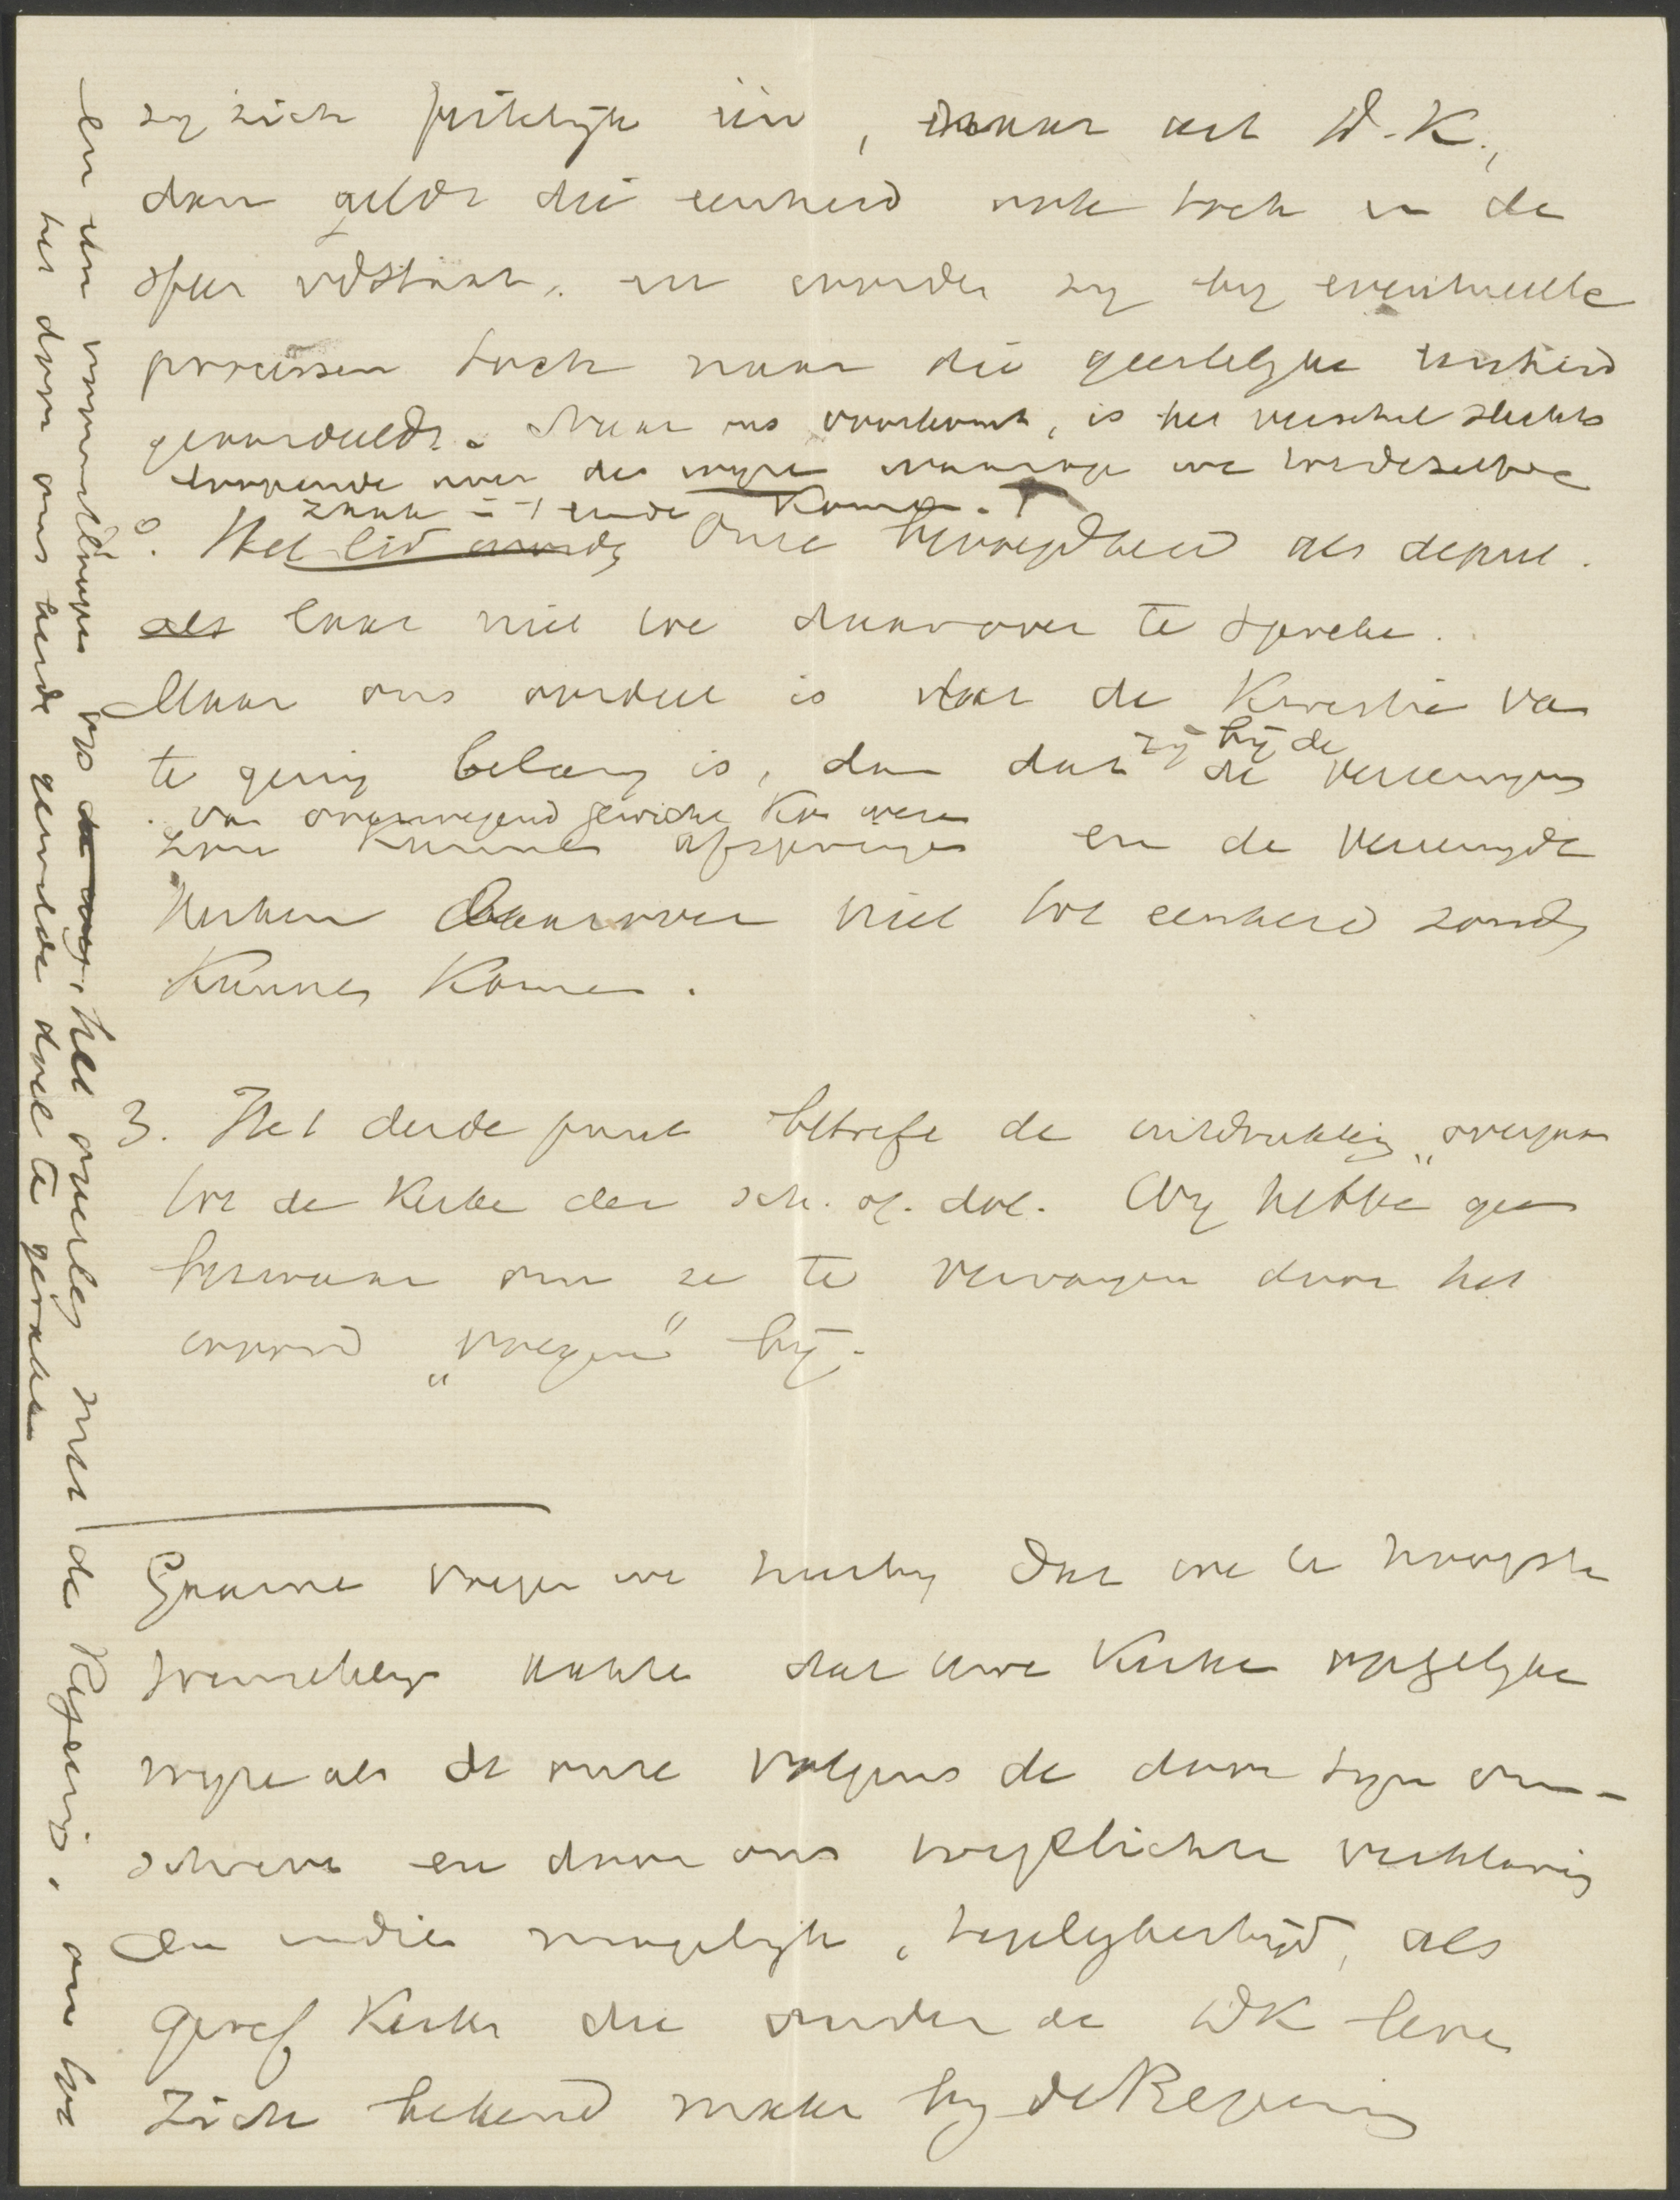 zy zich feitelijk één, maar art W.K.,
dan geldt die eenheid ook toch in de
, en worden zy by eventueele
processen toch naar die geestelyke eenheid
geoordeeld. Naar ons voorkomt, is het verschil slechts
loopende over de wyze waarop we tot dezelfde
zaak – einde Komen.
0. Het lid wordt Onze bevoegdheid als deput.
als laat niet toe daarover te spreke.
Maar ons oordeel is dat de Kwestie van
te gering belang is, dan dat zij bij de de vereeniging
van overwegend gewicht Kan wezen
zou Kunnen afspringen en de vereenigde
Kerken daarover niet tot eenheid zoude
Kunnen Komen.
3. Het derde punt betreft de uitdrukking „overgaan
tot de Kerke der sch. of. dol. Wy hebbe geen
bezwaar om ze te vervangen door het
woord „voegen" bij.
Gaarne voegen we hierby dat we 't hoogst
wenschelyk achte dat uwe Kerke opgelyke
wyze als de onze volgens de door hyn om-
schreve en door ons toegelichte verklaring
En indien mogelyk, tegelykertyd, als
geref Kerke die onder de WK leve
Zich bekend make by de Regering
en dan vooraf op de weg, het overleg met de Regering, om tot
het door ons beide gewilde doel te geraken